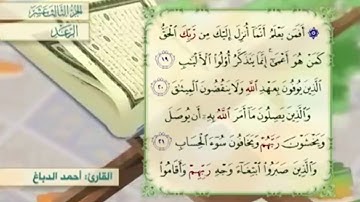 الجزء الثالث عشر
الرعد
۞ أَفَمَن يَعْلَمُ أَنَّمَا أُنزِلَ إِلَيْكَ مِن رَّبِّكَ الْحَقُّ
كَمَنْ هُوَ أَعْمَىٰ ۚ إِنَّمَا يَتَذَكَّرُ أُوْلُوا الْأَلْبَابِ ١٩
الَّذِينَ يُوفُونَ بِعَهْدِ اللَّهِ وَلَا يَنقُضُونَ الْمِيثَاقَ ٢٠
وَالَّذِينَ يَصِلُونَ مَا أَمَرَ اللَّهُ بِهِ أَن يُوصَلَ
وَيَخْشَوْنَ رَبَّهُمْ وَيَخَافُونَ سُوءَ الْحِسَابِ ٢١
وَالَّذِينَ صَبَرُوا ابْتِغَاءَ وَجْهِ رَبِّهِمْ وَأَقَامُوا
القارئ: أحمد الدباغ